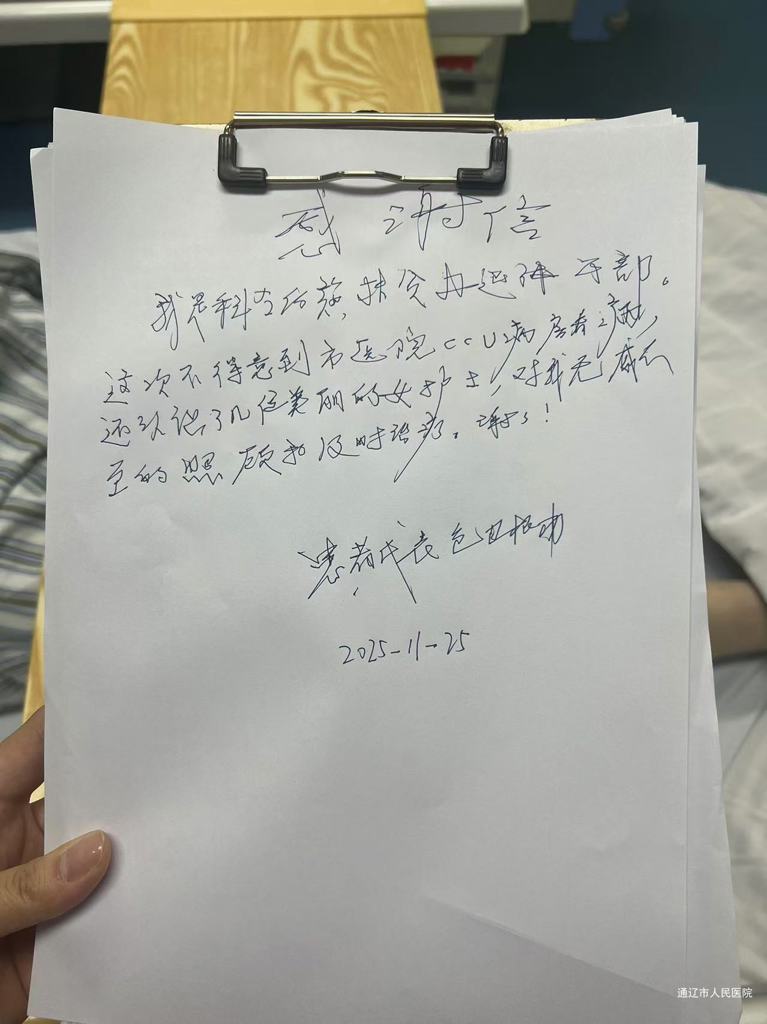 感谢信
我是科左后旗,扶贫办退休干部。
这次不得意到市医院CCU病房看病,
还认识了几位美丽的女护士,对我无微不
至的照顾和及时治疗。谢谢!
患者代表 包
2025-11-25
通辽市人民医院